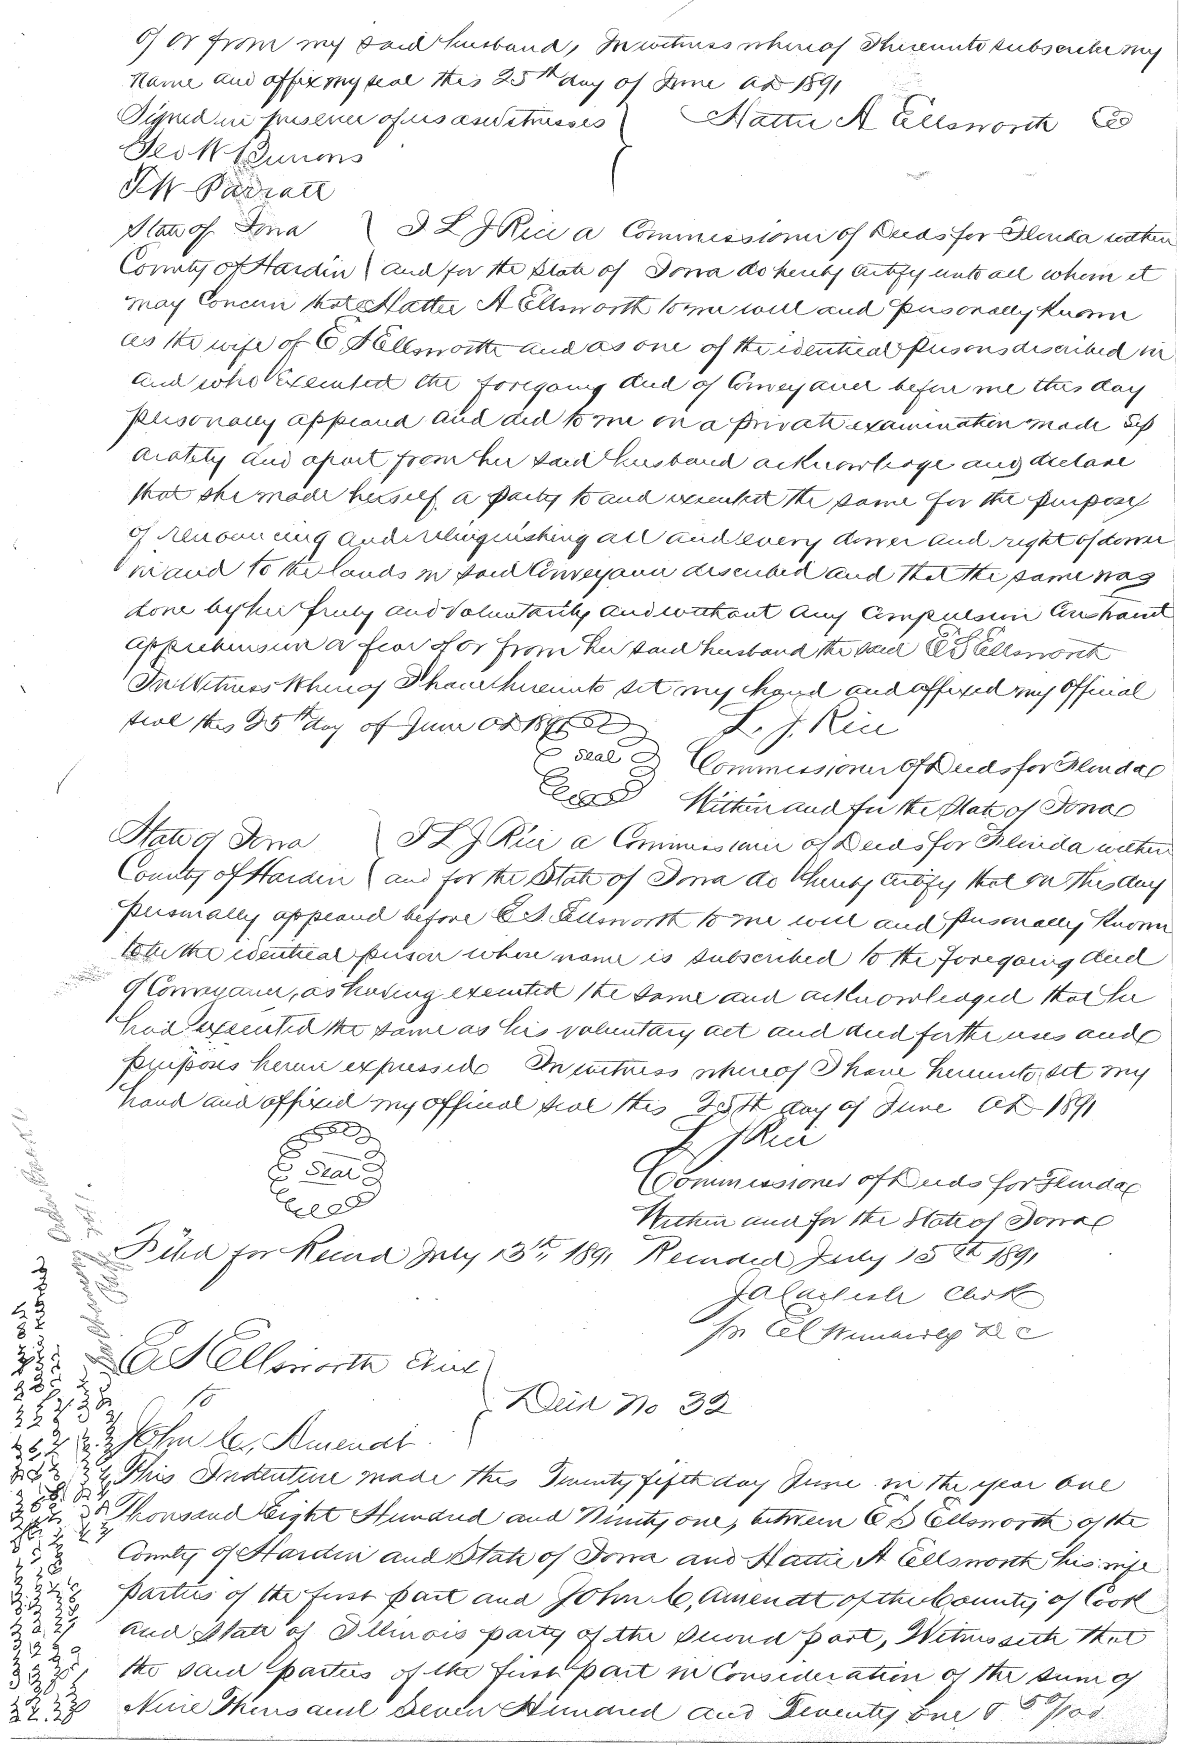 of or from my said husband, In witness whereof I hereunto subscribe my
name and affix my seal this 25th day of June AD 1891
Signed in presence of us as witnesses } Hattie A Ellsworth
Geo W
T W Parratt
State of Iowa } I L J Rice a Commissioner of Deeds for Florida within
County of Hardin } and for the State of Iowa do hereby certify unto all whom it
may concern that Hattie A Ellsworth to me well and personally known
as the wife of E S Ellsworth and as one of the identical persons described in
and who executed the foregoing deed of conveyance before me this day
personally appeared and did to me on a private examination made sep
arately and apart from her said husband acknowledge and declare
that she made herself a party to and executed the same for the purpose
of renouncing and relinquishing all and every dower and right of dower
in and to the lands in said conveyance described and that the same was
done by her freely and voluntarily and without any compulsion constraint
apprehension or fear of or from her said husband the said E S Ellsworth
In Witness Whereof I have hereunto set my hand and affixed my official
seal this 25th day of June AD 1891 L. J. Rice
Seal Commissioner of Deeds for Florida
Within and for the State of Iowa
State of Iowa } I L J Rice a Commissioner of Deeds for Florida within
County of Hardin } and for the State of Iowa do hereby certify that on this day
personally appeared before E S Ellsworth to me well and personally known
to be the identical person whose name is subscribed to the foregoing deed
of Conveyance, as having executed the same and acknowledged that he
had executed the same as his voluntary act and deed for the uses and
purposes herein expressed In witness whereof I have hereunto set my
hand and affixed my official seal this 25th day of June AD 1891
L J Rice
Seal
Commissioner of Deeds for Florida
Within and for the State of Iowa
Filed for Record July 13th 1891 Recorded July 15th 1891
Clerk
D C
E S Ellsworth & Wife }
to } Deed No 32
John C. Amendt
This Indenture made this Twenty fifth day June in the year one
Thousand Eight Hundred and Ninety one, between E S Ellsworth of the
County of Hardin and State of Iowa and Hattie A Ellsworth his wife
parties of the first part and John C. Amendt of the County of Cook
and State of Illinois party of the second part, Witnesseth that
the said parties of the first part in Consideration of the sum of
Nine Thousand Seven Hundred and Twenty one & 50/100